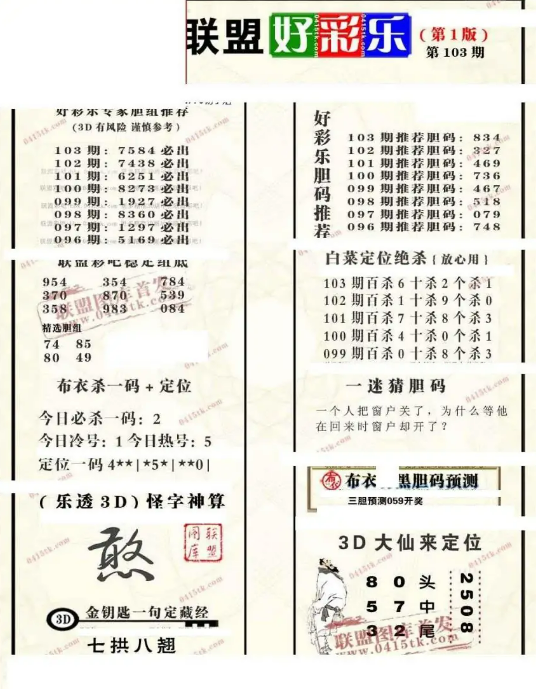 联盟 好彩乐
(第1版)
第103期
好彩乐专家胆组推荐
(3D有风险 谨慎参考)
103期：7584必出
102期：7438必出
101期：6251必出
100期：8273必出
099期：1927必出
098期：8360必出
097期：1297必出
096期：5169必出
联盟彩吧稳定组底
954 354 784
370 870 539
358 983 084
精选胆组
74 85
80 49
布衣杀一码+定位
今日必杀一码：2
今日冷号：1 今日热号：5
定位一码 4**|*5*|**0|
(乐透3D)怪字神算
憨
联盟图库
3D 金钥匙一句定藏经
七拱八翘
好彩乐胆码推荐
103期推荐胆码：834
102期推荐胆码：327
101期推荐胆码：469
100期推荐胆码：736
099期推荐胆码：467
098期推荐胆码：518
097期推荐胆码：079
096期推荐胆码：748
白菜定位绝杀(放心用)
103期百杀6十杀2个杀1
102期百杀1十杀9个杀0
101期百杀7十杀8个杀3
100期百杀4十杀0个杀1
099期百杀0十杀8个杀3
一迷猜胆码
一个人把窗户关了，为什么等他
在回来时窗户却开了？
布衣 黑胆码预测
三胆预测059开奖
3D大仙来定位
8 0 头
5 7 中
3 2 尾
2508
联盟图库首发
www.0415tk.com